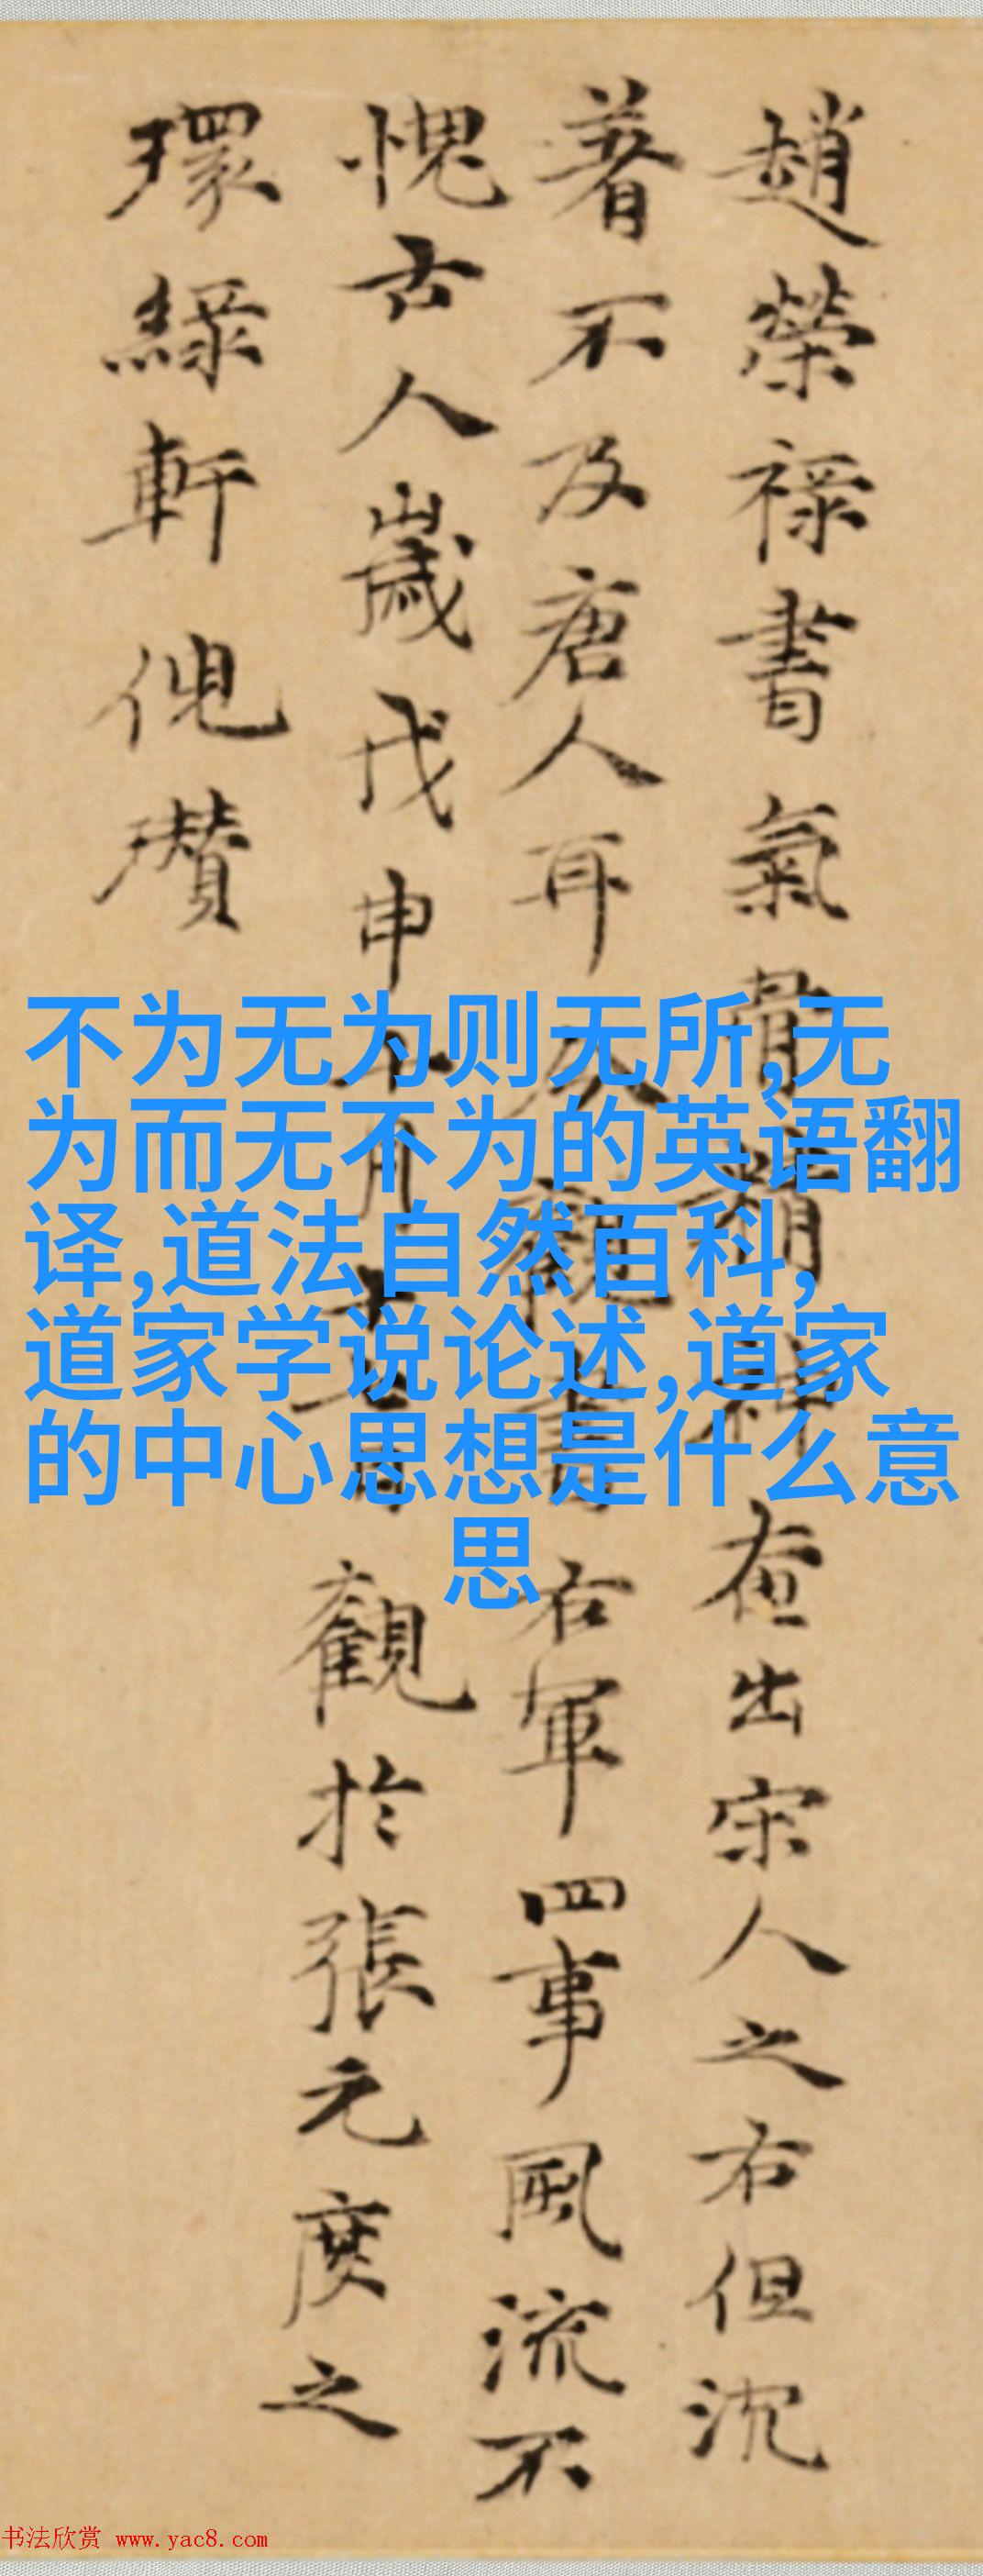 趙榮祿書氣骨
在出宋人之右但沉
著不及唐人耳
右軍四事風流不
愧古人歲戊申
觀於張元度之
環綠軒倪瓚
不为无为则无所,无
为而无不为的英语翻
译,道法自然百科,
道家学说论述,道家
的中心思想是什么意
思
书法欣赏 www.yac8.com